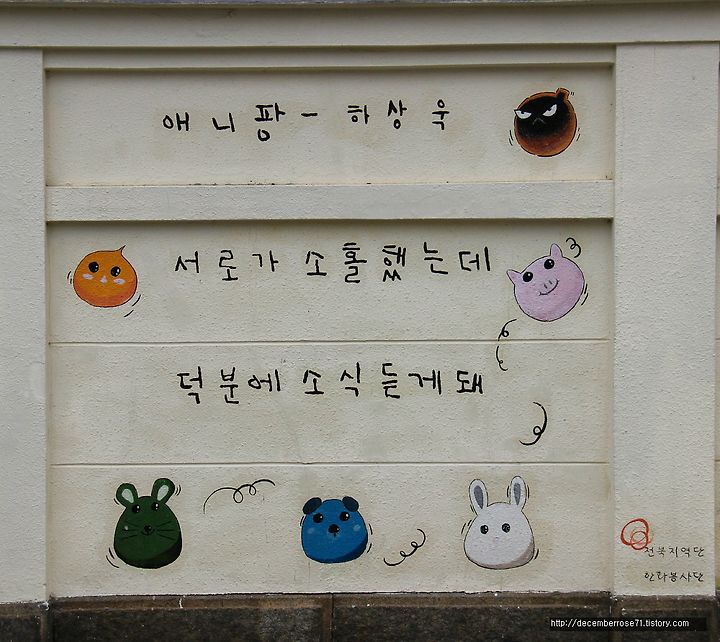 애니팡 - 하상욱
서로가 소홀했는데
덕분에 소식 듣게돼
전북지역단
한화봉사단
http://decemberrose71.tistory.com